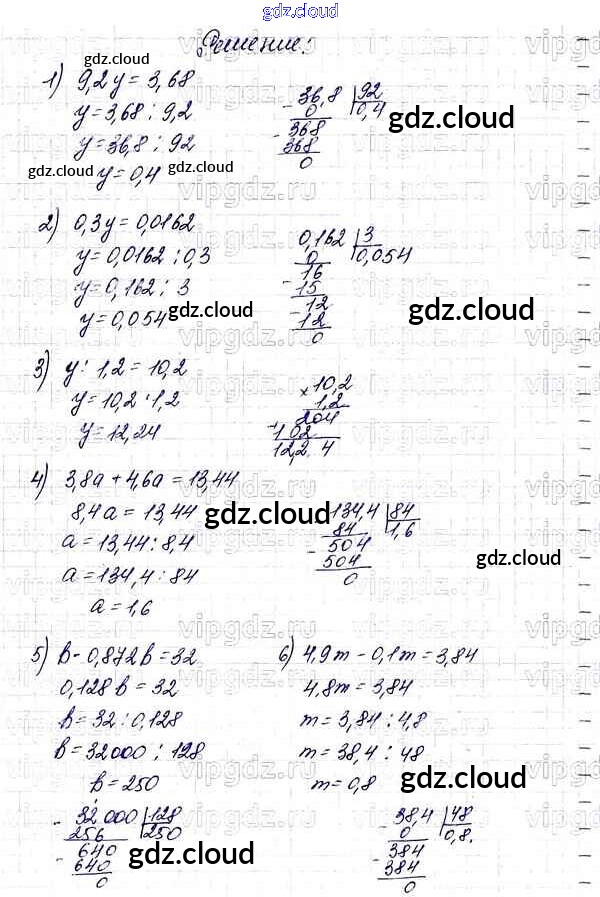 gdz.cloud
Решение:
1) 9,2y = 3,68
y = 3,68 : 9,2
y = 36,8 : 92
y = 0,4
- 36,8 | 92
0 0,4
- 368
368
0
2) 0,3y = 0,0162
y = 0,0162 : 0,3
y = 0,162 : 3
y = 0,054
0,162 | 3
0 0,054
- 16
15
- 12
12
0
3) y : 1,2 = 10,2
y = 10,2 · 1,2
y = 12,24
× 10,2
1,2
204
+ 102
12,2 4
4) 3,8a + 4,6a = 13,44
8,4a = 13,44
a = 13,44 : 8,4
a = 134,4 : 84
a = 1,6
- 134,4 | 84
84 1,6
- 504
504
0
5) b - 0,872b = 32
0,128b = 32
b = 32 : 0,128
b = 32000 : 128
b = 250
- 32000 | 128
256 250
- 640
640
0
6) 4,9m - 0,1m = 3,84
4,8m = 3,84
m = 3,84 : 4,8
m = 38,4 : 48
m = 0,8
- 38,4 | 48
0 0,8.
- 384
384
0
gdz.cloud
gdz.cloud
gdz.cloud
gdz.cloud
gdz.cloud
gdz.cloud
gdz.cloud
gdz.cloud
gdz.cloud
gdz.cloud
gdz.cloud
gdz.cloud
vipgdz.ru